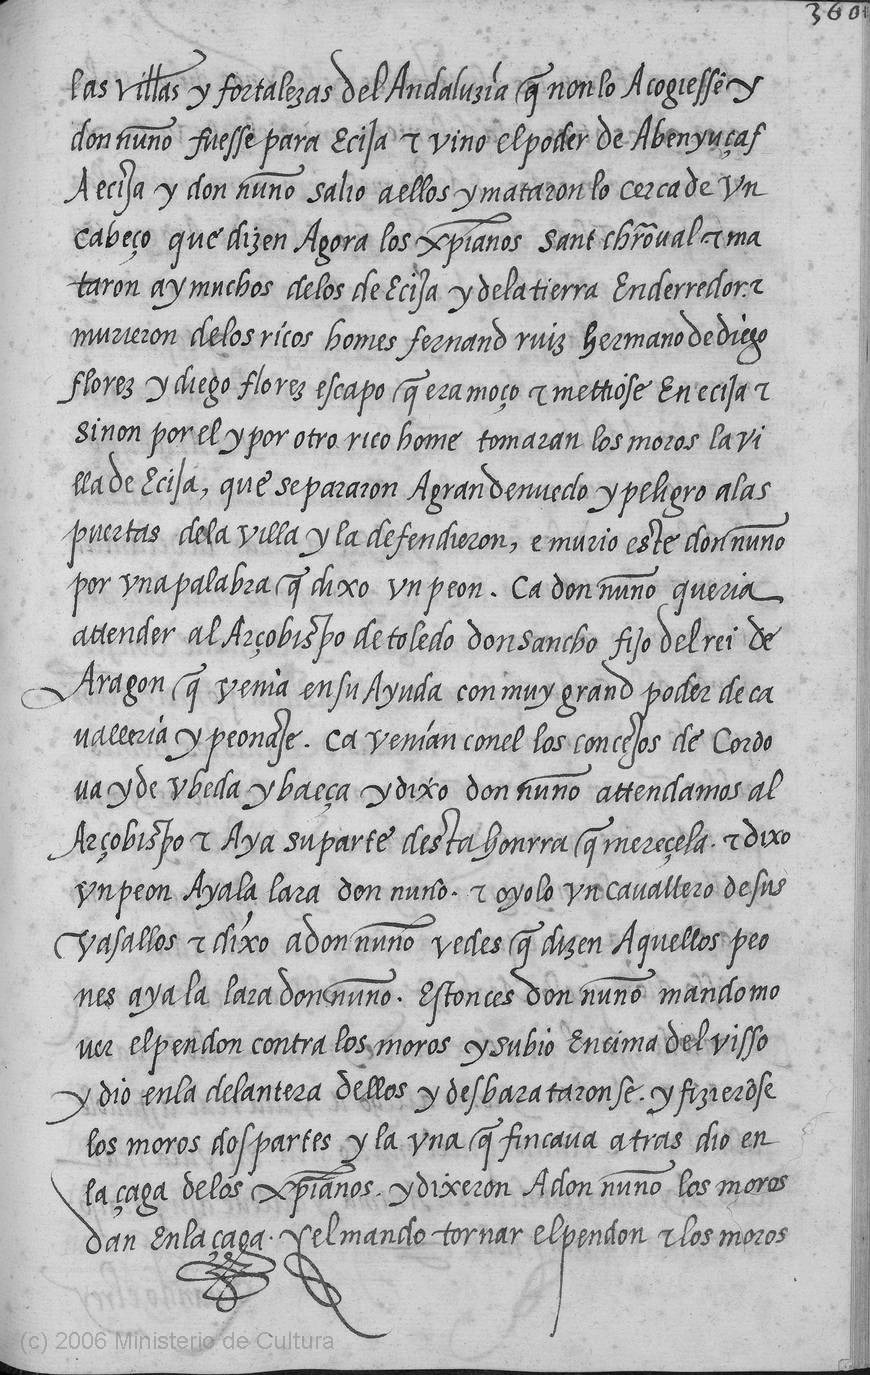 360
las villas y fortalezas del Andaluzía q̃ non lo Acogiessẽ y
don nuño fuesse para Ecija τ vino el poder de Abenyuçaf
A ecija y don nuño salio a ellos y mataron lo cerca de vn
cabeço que dizen Agora los xp̃ianos sant chr̃oual τ ma
taron ay muchos de los de Ecija y de la tierra Enderredor. τ
murieron de los ricos homes fernand ruiz hermano de diego
florez y diego florez escapo q̃ era moço τ mettiose En ecija τ
sinon por el y por otro rico home tomaran los moros la vi
lla de Ecija, que se pararon A gran denuedo y peligro a las
puertas de la villa y la defendieron, e murio este don nuño
por vna palabra q̃ dixo vn peon. Ca don nuño queria
attender al Arçobispo de toledo don sancho fijo del rei de
Aragon q̃ venia en su Ayuda con muy grand poder de ca
ualleria y peonaje. Ca venían con el los concejos de Cordo
ua y de vbeda y baeça y dixo don nuño attendamos al
Arçobispo τ Aya su parte desta honrra q̃ mereçela. τ dixo
vn peon Ayala lara don nuño. τ oyolo vn cauallero de sus
vasallos τ dixo a don nuño vedes q̃ dizen Aquellos peo
nes ayala lara don nuño. Estonces don nuño mando mo
uer el pendon contra los moros y subio Encima del visso
y dio en la delantera dellos y desbarataronse. y fizierõse
los moros dos partes y la vna q̃ fincaua atras dio en
la çaga de los xp̃ianos. y dixeron A don nuño los moros
dan En la çaga. y el mando tornar el pendon τ los moros
(c) 2006 Ministerio de Cultura